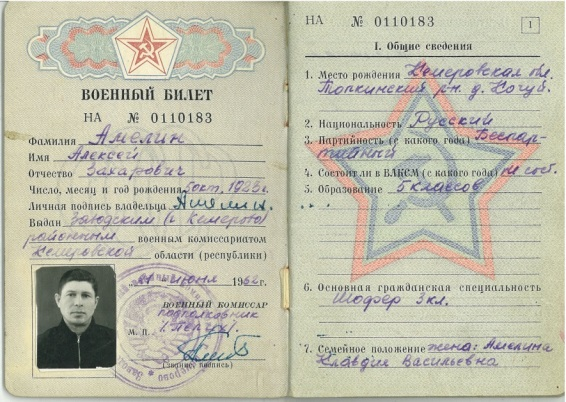 ВОЕННЫЙ БИЛЕТ
НА № 0110183
Фамилия Амелин
Имя Алексей
Отчество Захарович
Число, месяц и год рождения 5 окт. 1925 г.
Личная подпись владельца Амелин.
Выдан Заводским (г. Кемерово)
районным военным комиссариатом
Кемеровской области (республики)
"21" июня 1962 г.
ВОЕННЫЙ КОМИССАР
подполковник
М. П.
(подпись)
НА № 0110183
1
I. Общие сведения
1. Место рождения Кемеровская обл.
Топкинский рн. д.
2. Национальность Русский
3. Партийность (с какого года) Беспар-
тийный
4. Состоит ли в ВЛКСМ (с какого года) не сост.
5. Образование 5 классов
6. Основная гражданская специальность
Шофер 3 кл.
7. Семейное положение жена: Амелина
Клавдия Васильевна